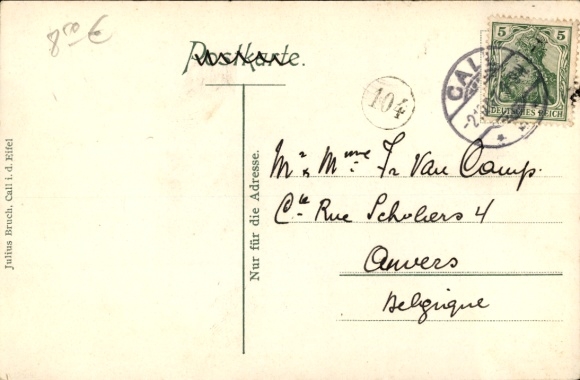 8⁵⁰ €
Postkarte.
5 5
DEUTSCHES REICH
CALL
104
Mr & Mme Fr Van Camp.
Cte Rue Scholiers 4
Anvers
Belgique
Nur für die Adresse.
Julius Bruch, Call i. d. Eifel